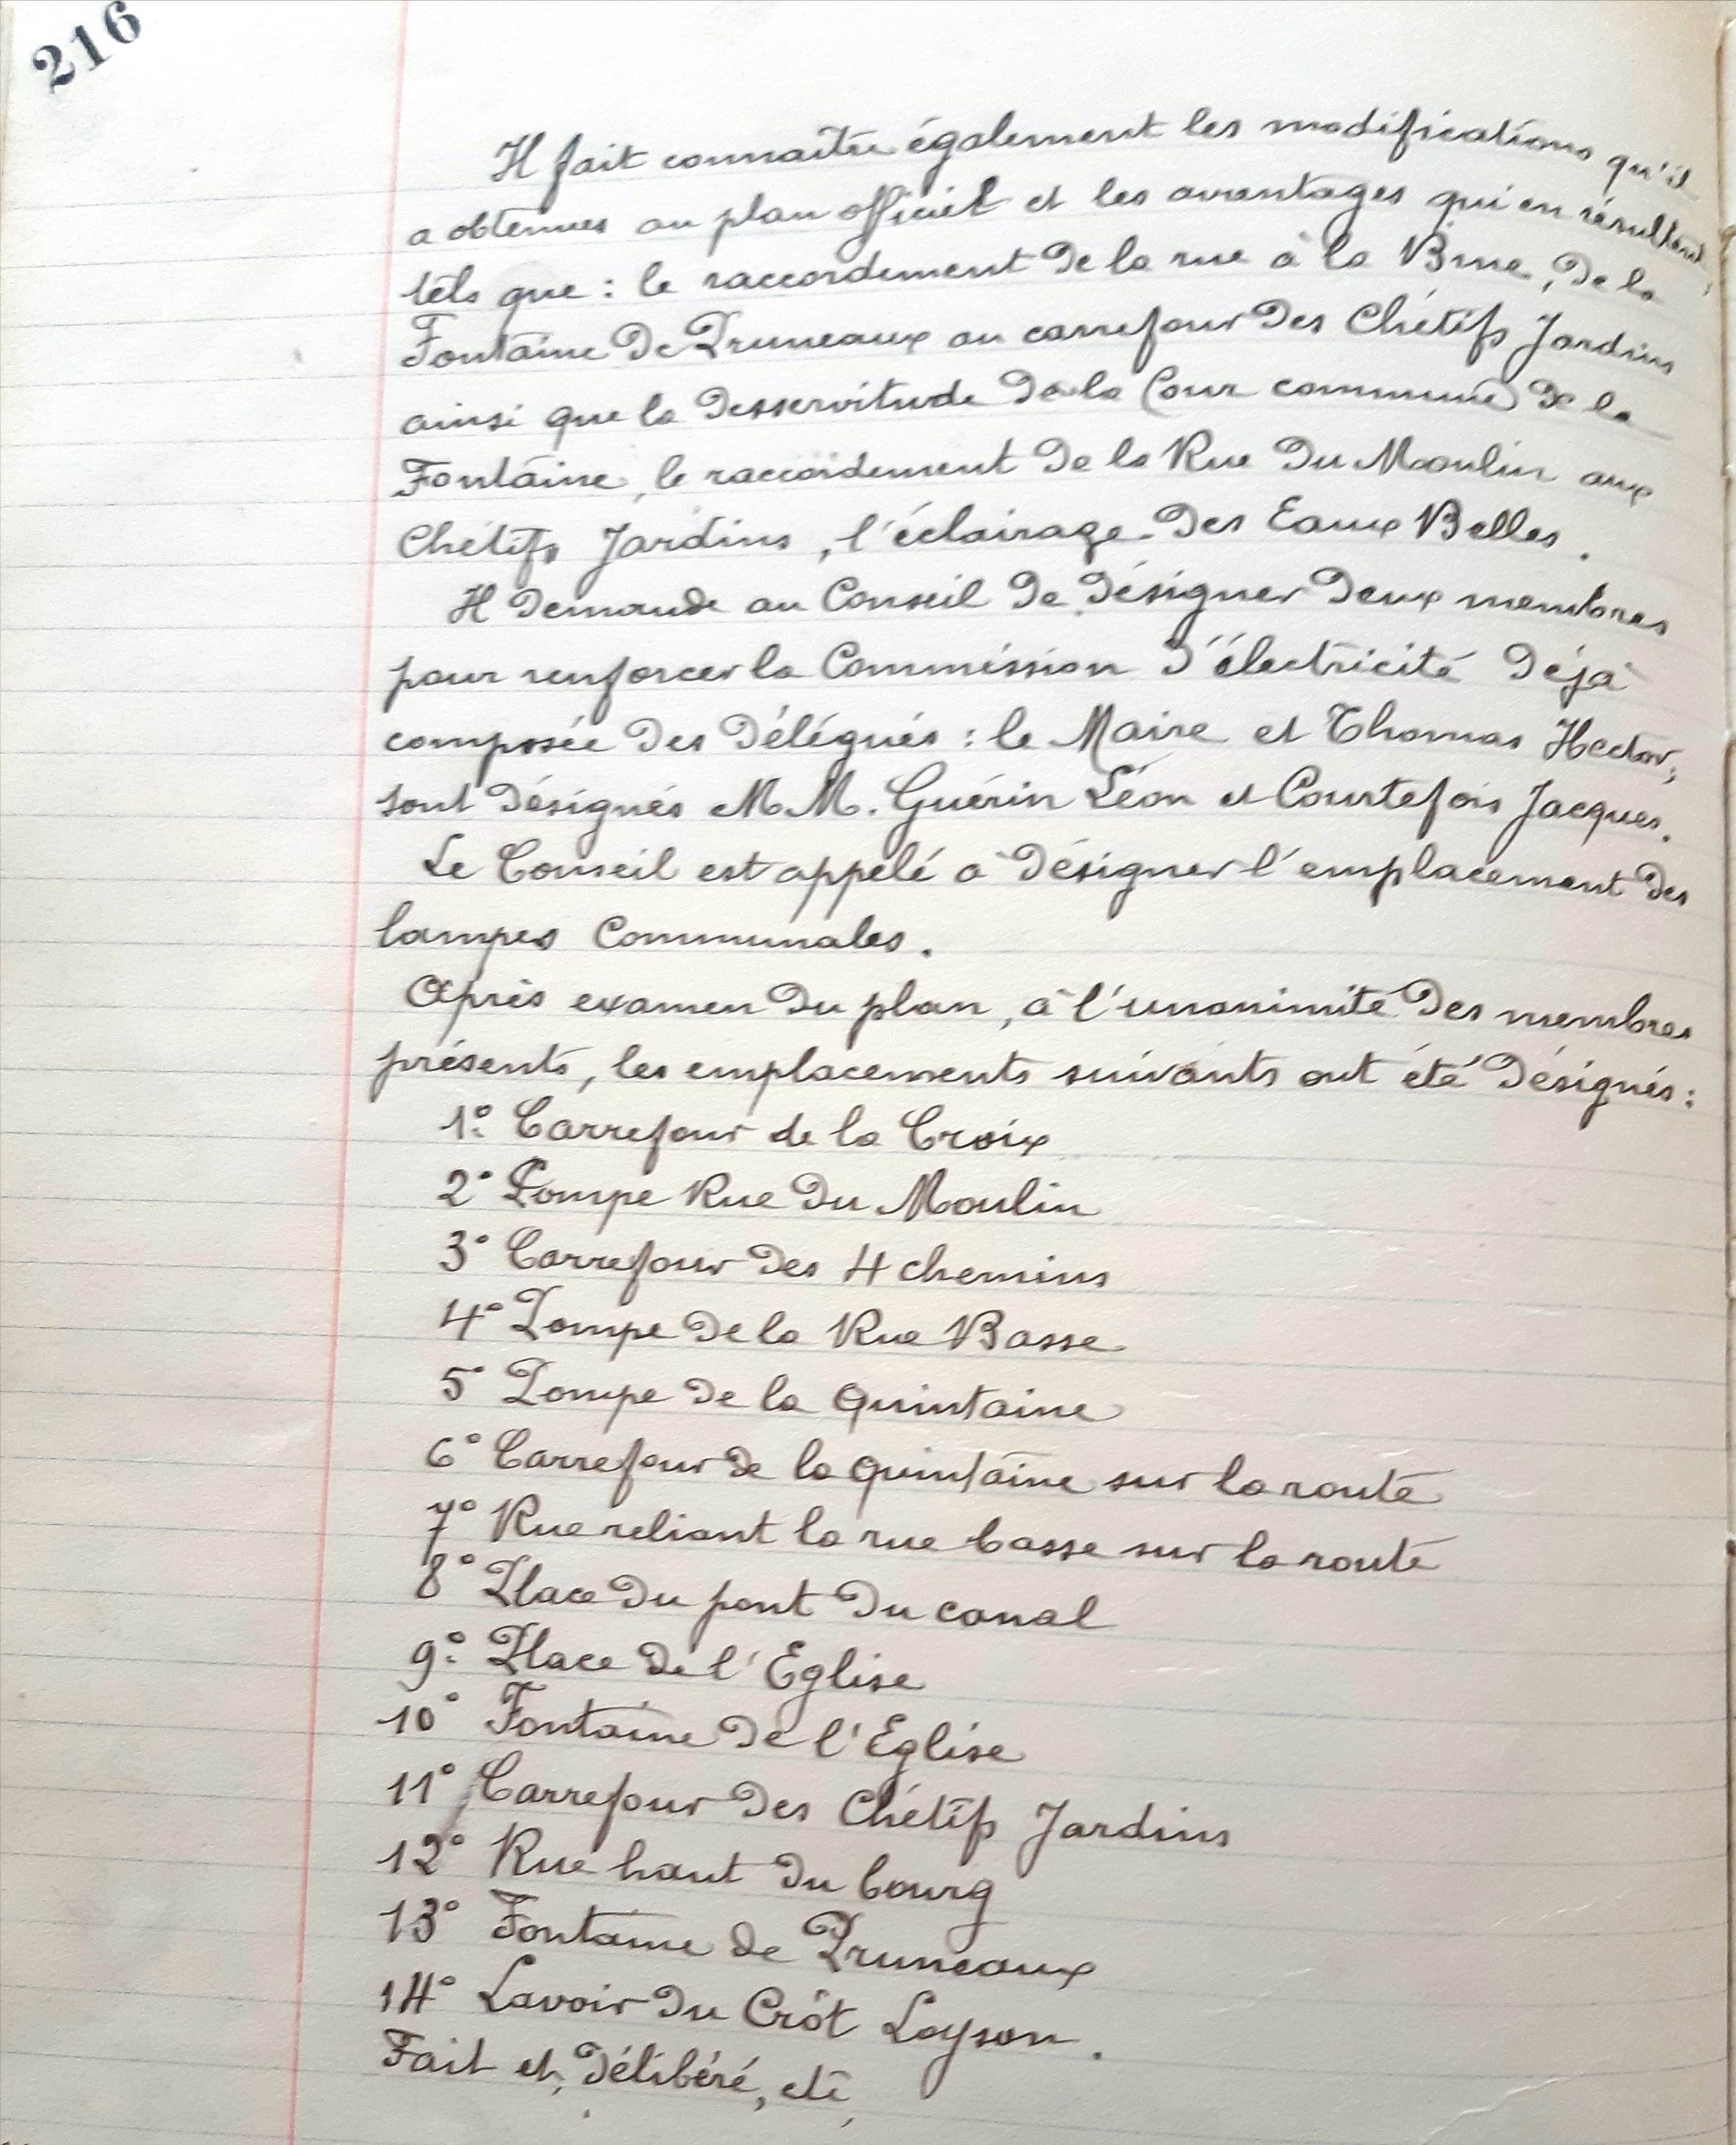 216
Il fait connaître également les modifications qu'il
a obtenues au plan officiel et les avantages qui en résultent,
tels que : le raccordement de la rue à la Brue, de la
Fontaine de Pruneaux au carrefour des Chétifs Jardins
ainsi que la desservitude de la Cour commune de la
Fontaine, le raccordement de la Rue du Moulin aux
Chétifs Jardins, l'éclairage des Eaux Belles.
Il demande au Conseil de désigner deux membres
pour renforcer la Commission d'électricité déjà
composée des délégués : le Maire et Thomas Hector,
sont désignés MM. Guérin Léon et Courtefois Jacques.
Le Conseil est appelé à désigner l'emplacement des
lampes Communales.
Après examen du plan, à l'unanimité des membres
présents, les emplacements suivants ont été désignés :
1° Carrefour de la Croix
2° Pompe Rue du Moulin
3° Carrefour des 4 chemins
4° Pompe de la Rue Basse
5° Pompe de la Quintaine
6° Carrefour de la Quintaine sur la route
7° Rue reliant la rue basse sur la route
8° Place du pont du canal
9° Place de l'Eglise
10° Fontaine de l'Eglise
11° Carrefour des Chétifs Jardins
12° Rue haut du bourg
13° Fontaine de Pruneaux
14° Lavoir du Crôt Loyson.
Fait et délibéré, etc